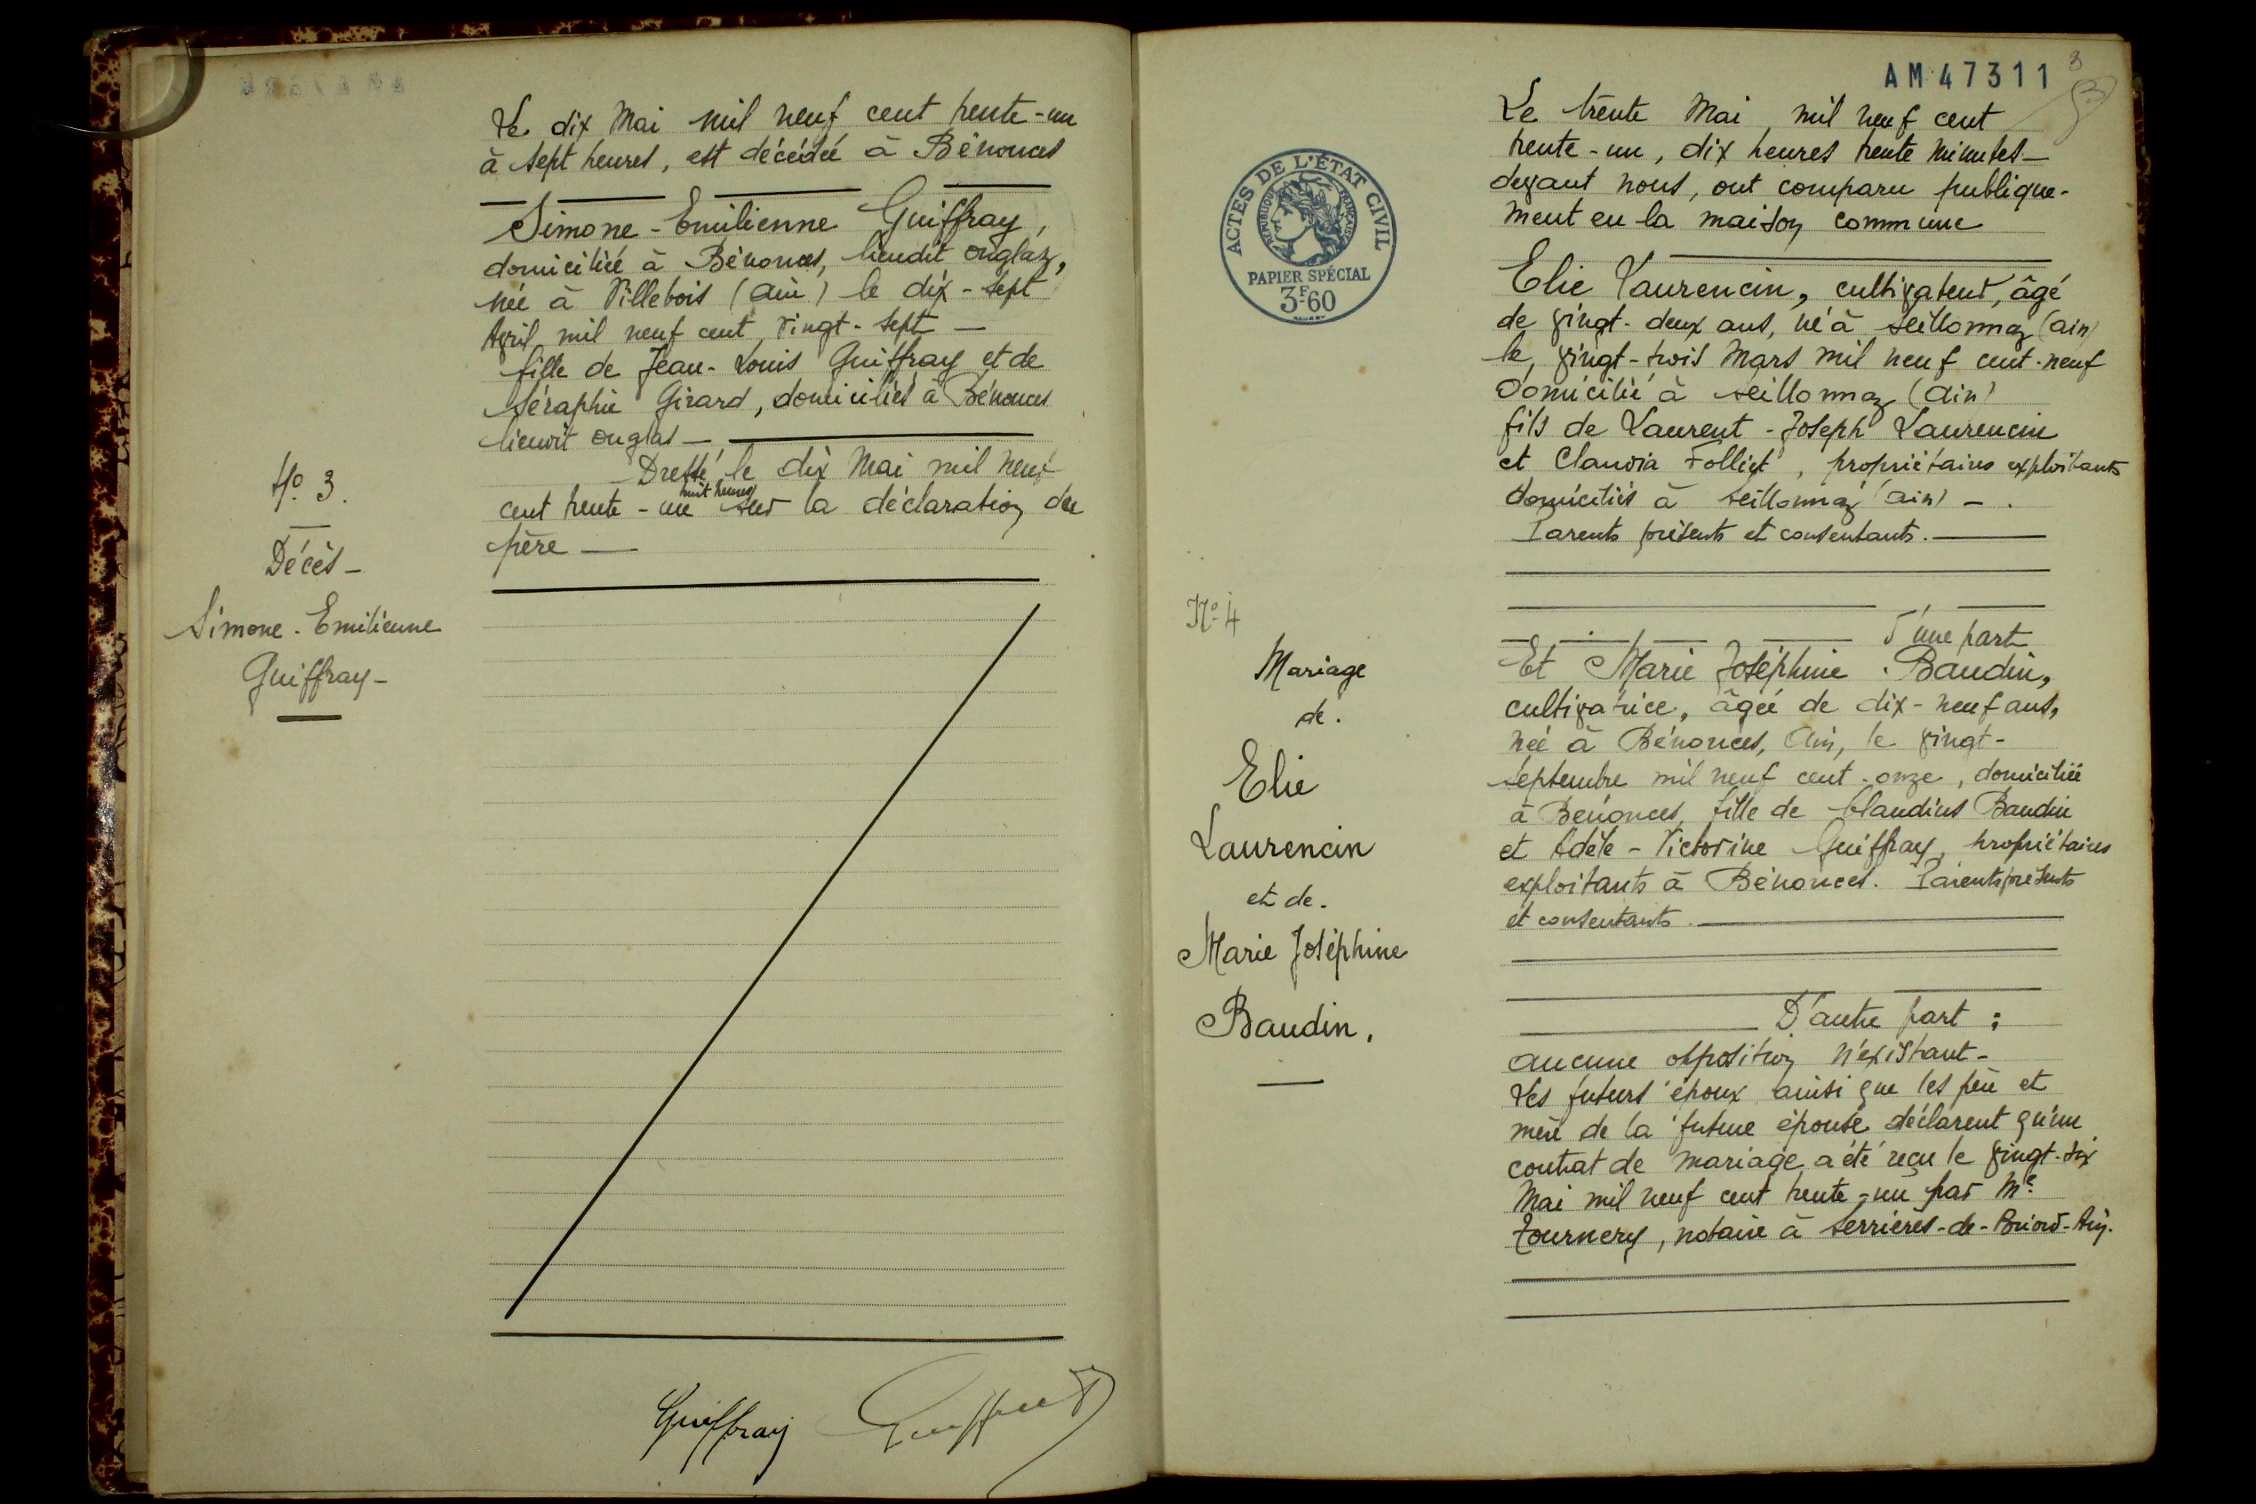 Nº 3.
Décès -
Simone - Emilienne
Guiffray -
Le dix Mai mil neuf cent trente-un
à sept heures, est décédée à Bénonces
Simone - Emilienne Guiffray,
domiciliée à Bénonces, lieudit onglaz,
née à Villebois (Ain) le dix-sept
Avril mil neuf cent vingt-sept -
fille de Jean-Louis Guiffray et de
Séraphie Girard, domiciliés à Bénonces
lieudit onglas -
Dressé le dix Mai mil neuf
cent trente-un huit heures sur la déclaration du
père -
Guiffray
AM47311
3
ACTES DE L'ÉTAT CIVIL
RÉPUBLIQUE FRANÇAISE
PAPIER SPÉCIAL
3F60
Nº 4
Mariage
de.
Elie
Laurencin
et de.
Marie Joséphine
Baudin.
Le trente Mai, mil neuf cent
trente-un, dix heures trente minutes -
devant nous, ont comparu publique-
ment en la maison commune
Elie Laurencin, cultivateur, âgé
de vingt-deux ans, né à Seillonnaz (ain)
le vingt-trois Mars mil neuf cent-neuf
Domicilié à Seillonnaz (Ain)
fils de Laurent-Joseph Laurencin
et Claudia Folliet, propriétaires exploitants
domiciliés à Seillonnaz (ain) - .
Parents présents et consentants.
d'une part
Et Marie Joséphine Baudin,
cultivatrice, âgée de dix-neuf ans,
née à Bénonces, Ain, le vingt-
septembre mil neuf cent-onze, domiciliée
à Bénonces, fille de Claudius Baudin
et Adèle-Victorine Guiffray, propriétaires
exploitants à Bénonces. Parents présents
et consentants.
D'autre part ;
aucune opposition n'existant -
Les futurs époux ainsi que les père et
mère de la future épouse déclarent qu'un
contrat de mariage a été reçu le vingt-six
Mai mil neuf cent trente-un par Me
Tournery, notaire à Serrières-de-Briord-Ain.